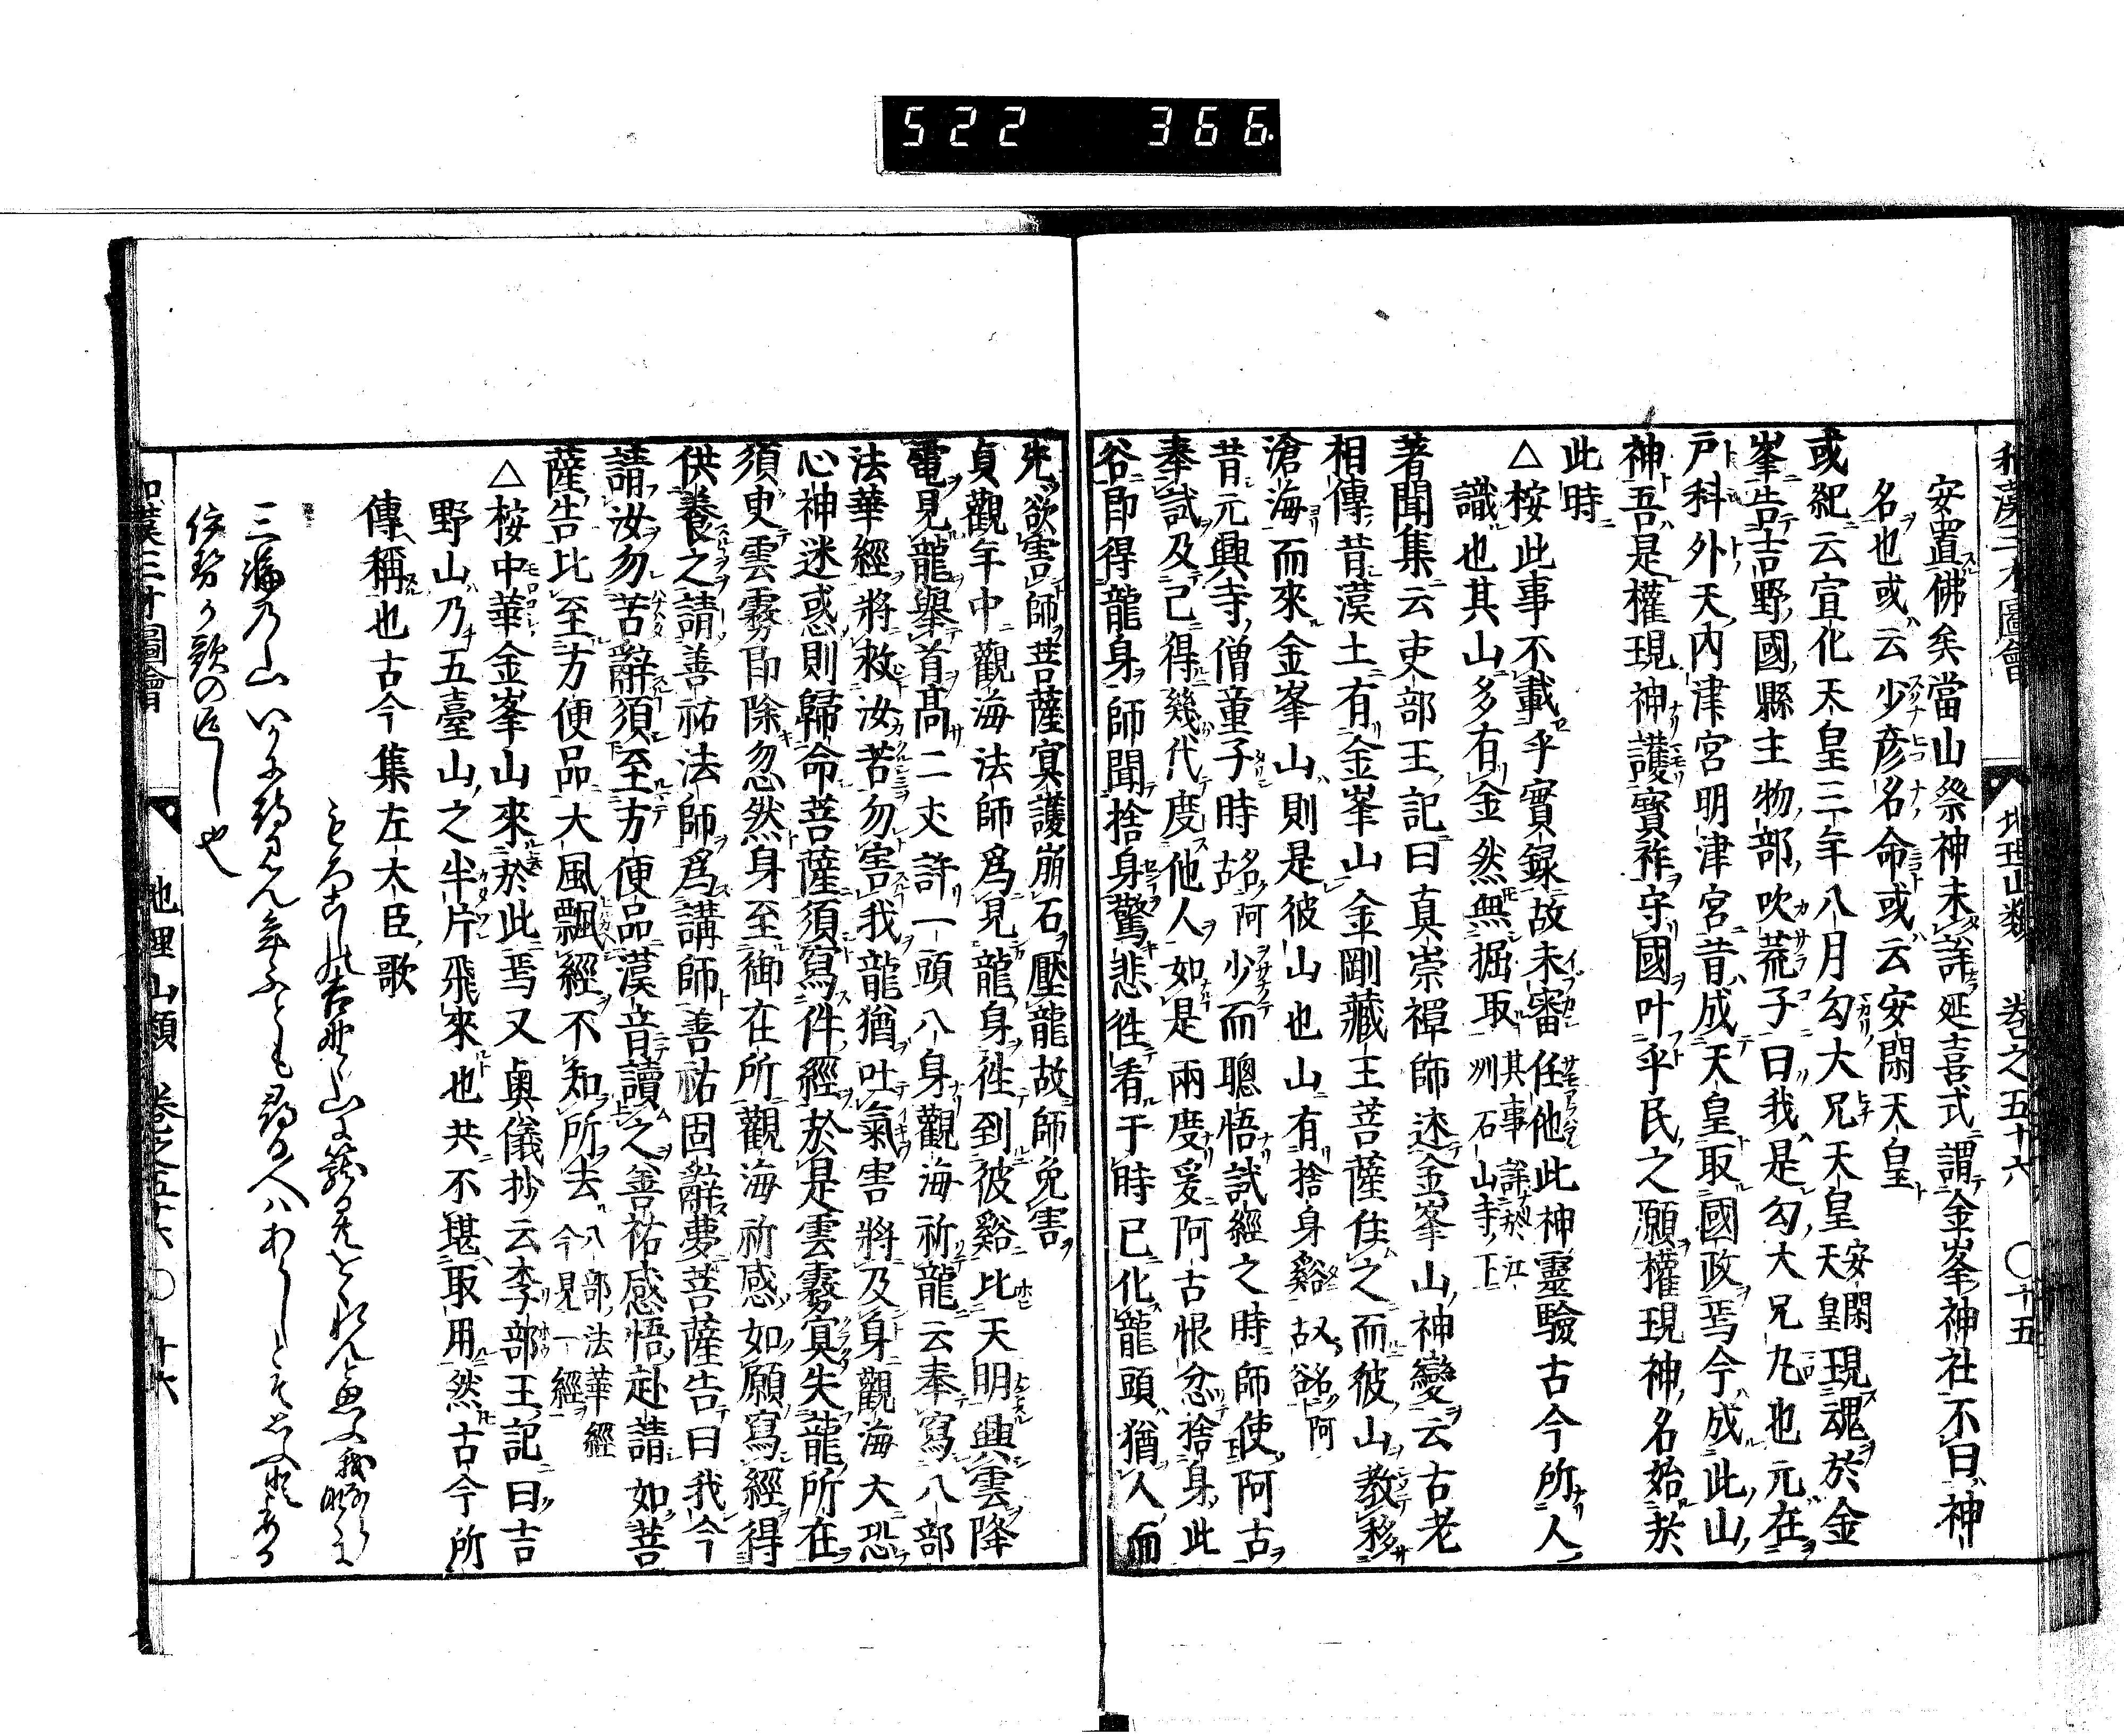 522 366
和漢三才圖會 地理山類 卷之五十六 〇十五
安置佛矣當山祭神未詳延喜式謂金峯神社不曰神
名也或云少彦名命或云安閑天皇
或紀云宣化天皇三年八月勾大兄天皇安閑天皇現魂於金
峯告吉野國縣主物部吹荒子曰我是勾大兄丸也元在
戸科外天內津宮明津宮昔成天皇取國政焉今成此山
神吾是權現神護寳祚守國叶乎民之願權現神名始於
此時
△桉此事不載乎實録故未審任他此神靈驗古今所人
識也其山多有金然無掘取其事詳於江州石山寺下
著聞集云吏部王記曰真崇禪師述金峯山神變云古老
相傳昔漢土有金峯山金剛藏王菩薩住之而彼山教移
滄海而來金峯山則是彼山也山有捨身谿故名阿
昔元興寺僧童子時名阿少而聰悟試經之時師使阿古
奉試及已得幾代度他人如是兩度爰阿古恨忿捨身此
谷即得龍身師聞捨身驚悲徃看于時已化龍頭猶人而
先欲害師菩薩冥護崩石壓龍故師免害
貞觀年中觀海法師爲見龍身徃到彼谿比天明興雲降
電見龍舉首髙二丈許一頭八身觀海祈龍云奉寫八部
法華經將救汝苦勿害我龍猶吐氣害將及身觀海大恐
心神迷惑則歸命菩薩須寫件經於是雲霧冥失龍所在
須臾雲霧即除忽然身至御在所觀海祈感如願寫經得
供養之請善祐法師爲講師善祐固辭夢菩薩告曰我今
請汝勿苦辭須至方便品漢音讀之善祐感悟赴請如菩
薩告比至方便品大風飄經不知所去八部法華經今見一經
△桉中華金峯山來於此焉又奥儀抄云李部王記曰吉
野山乃五臺山之半片飛來也共不堪取用然古今所
傳稱也古今集左大臣歌
もろこしの吉野の山に籠るともをくれんと思ふ我ならなくに
三輪の山いかに待みん年ふとも尋る人はあらしと思へは
伊勢か歌の返し也
和漢三才圖會 地理山類 卷之五十六 〇十六